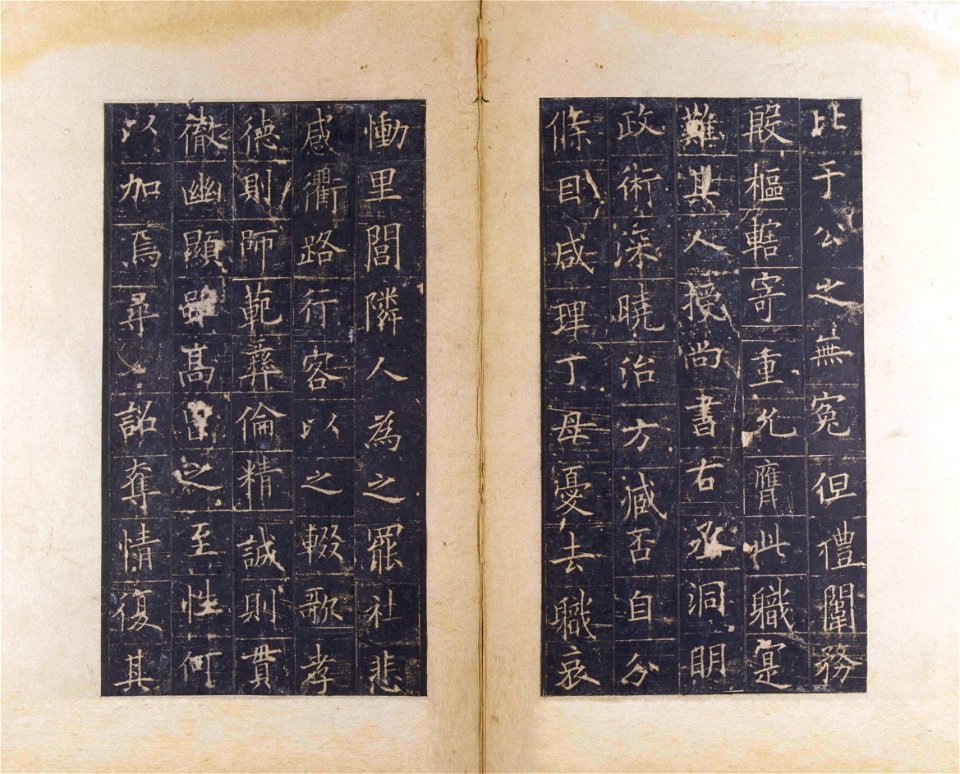 比于公之無寃但禮闈務
殷樞轄寄重允膺此職寔
難其人授尚書右丞洞明
政術深曉治方臧否自分
條目咸理丁母憂去職哀
慟里閭隣人為之罷社悲
感衢路行客以之輟歌孝
徳則師範彝倫精誠則貫
徹幽顯雖髙曽之至性何
以加焉尋詔奪情復其